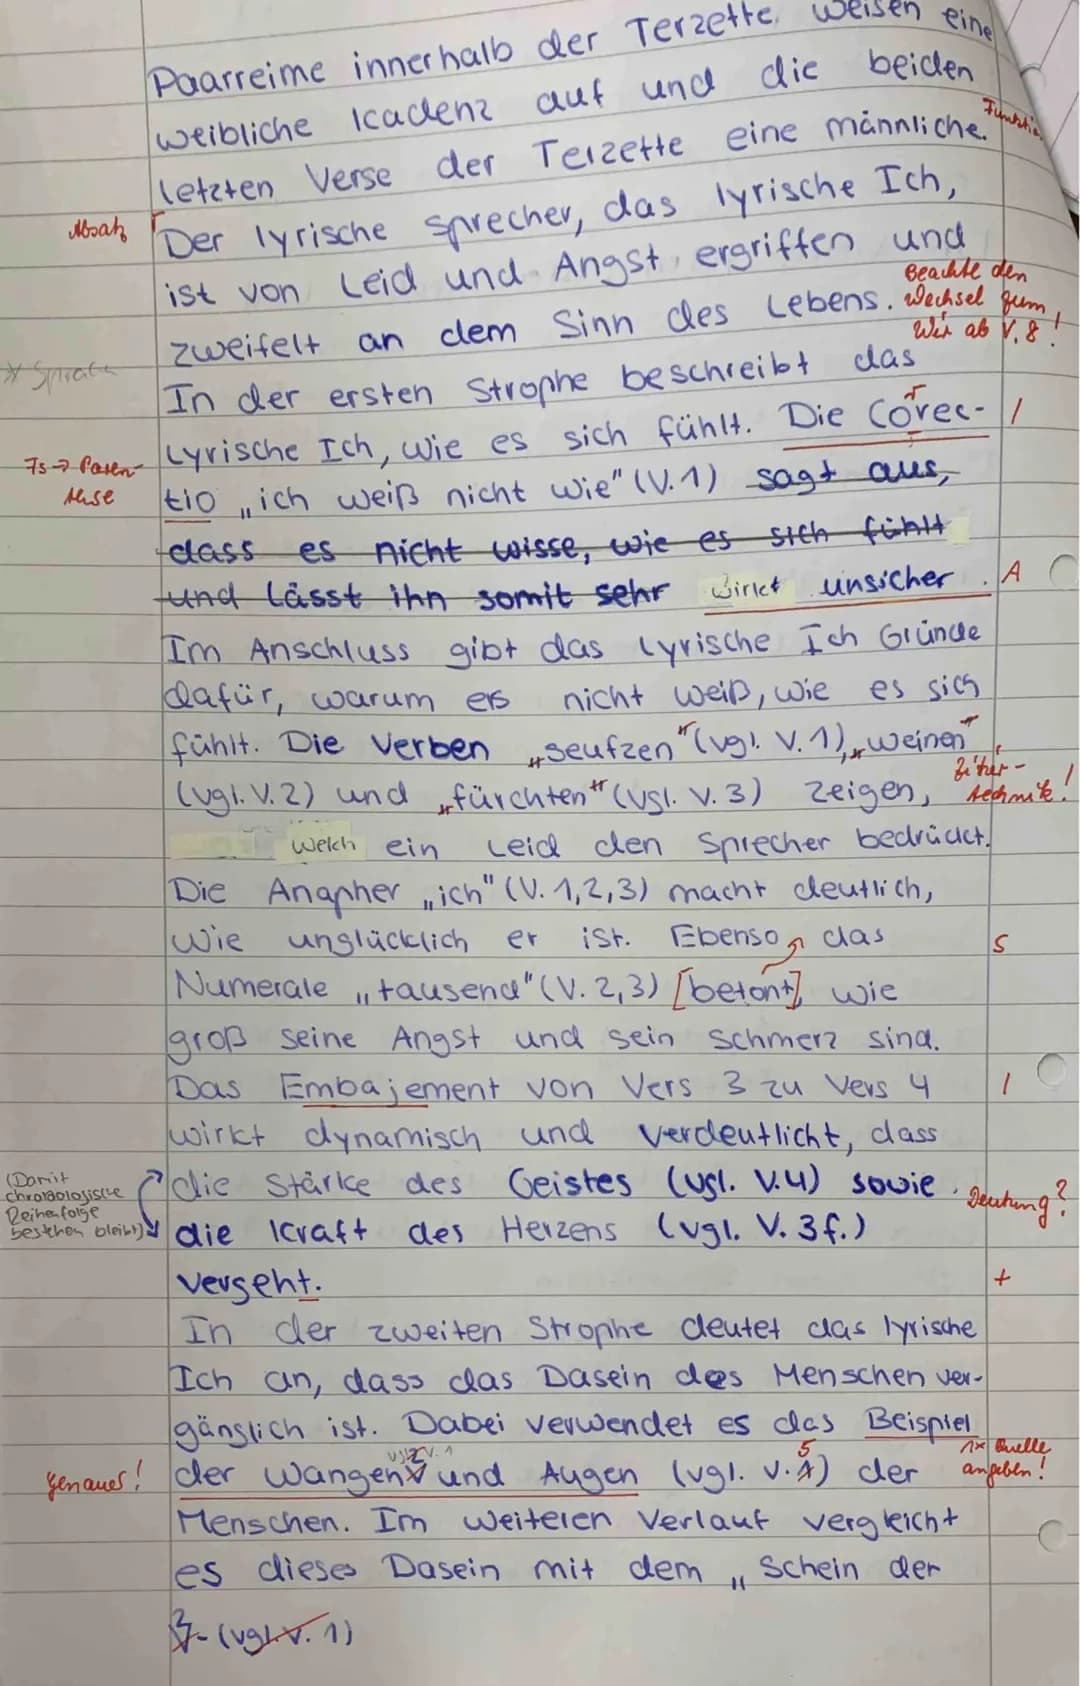 Paarreime innerhalb der Terzette. weisen eine
weibliche Kadenz auf und die beiden
Funktio
letzten Verse der Terzette eine männliche.
Absatz Der lyrische Sprecher, das lyrische Ich,
ist von Leid und Angst ergriffen und
zweifelt an dem Sinn des Lebens. Beachte den Wechsel zum Wir ab V. 8!
Sprache In der ersten Strophe beschreibt das
lyrische Ich, wie es sich fühlt. Die Correc- I
7s → Paren-these tio „ich weiß nicht wie" (V. 1) sagt aus,
dass es nicht wisse, wie es sich fühlt
und lässt ihn somit sehr wirkt unsicher. A
Im Anschluss gibt das lyrische Ich Gründe
dafür, warum es nicht weiß, wie es sich
fühlt. Die Verben „seufzen" (vgl. V. 1), „weinen"
(vgl. V. 2) und „fürchten" (vgl. V. 3) zeigen, Zitier-technik!
welch ein Leid den Sprecher bedrückt.
Die Anapher „ich" (V. 1, 2, 3) macht deutlich,
wie unglücklich er ist. Ebenso das S
Numerale „tausend" (V. 2, 3) [betont], wie
groß seine Angst und sein Schmerz sind.
Das Embajement von Vers 3 zu Vers 4 I
wirkt dynamisch und verdeutlicht, dass
(Damit chronologische Reihenfolge bestehen bleibt) die Stärke des Geistes (vgl. V. 4) sowie Deutung?
die Kraft des Herzens (vgl. V. 3 f.)
vergeht. +
In der zweiten Strophe deutet das lyrische
Ich an, dass das Dasein des Menschen ver-
gänglich ist. Dabei verwendet es das Beispiel
Genauer! der Wangen und Augen (vgl. V. 5) der 1x Quelle angeben!
Menschen. Im weiteren Verlauf vergleicht
es dieses Dasein mit dem „Schein der
(vgl. V. 1)